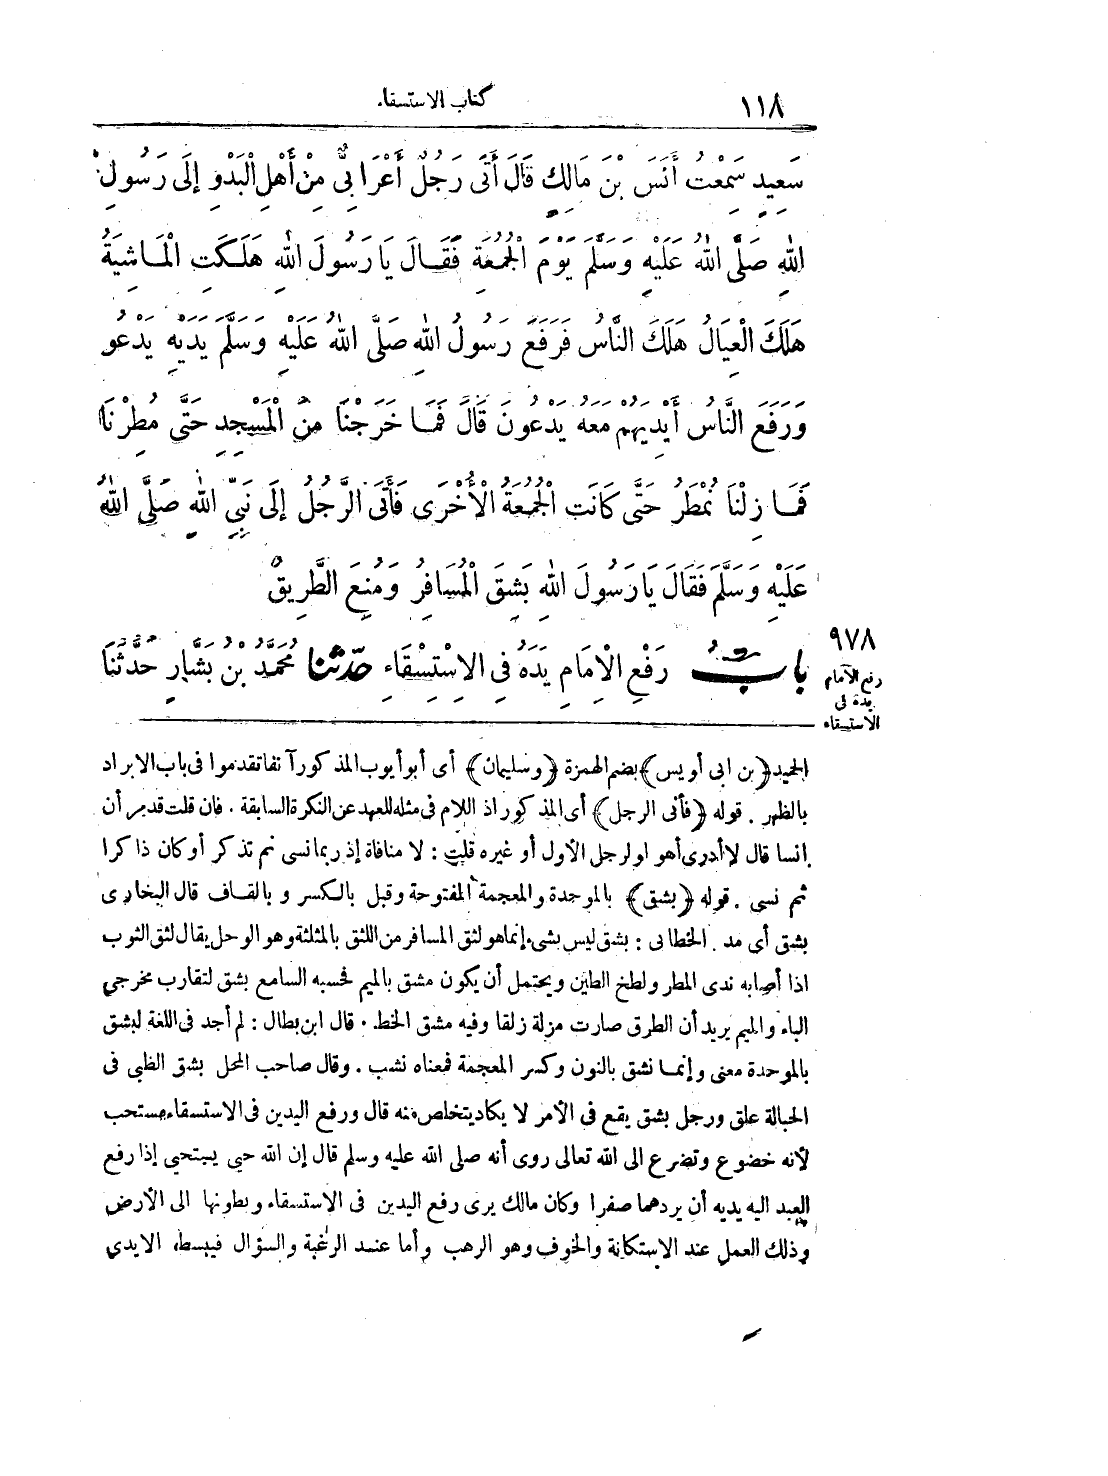 ١١٨ كتاب الاستسقاء
سَعِيدٍ سَمِعْتُ أَنَسَ بْنَ مَالِكٍ قَالَ أَتَى رَجُلٌ أَعْرَابِيٌّ مِنْ أَهْلِ الْبَدْوِ إِلَى رَسُولِ
اللهِ صَلَّى اللهُ عَلَيْهِ وَسَلَّمَ يَوْمَ الْجُمُعَةِ فَقَالَ يَا رَسُولَ اللهِ هَلَكَتِ الْمَاشِيَةُ
هَلَكَ الْعِيَالُ هَلَكَ النَّاسُ فَرَفَعَ رَسُولُ اللهِ صَلَّى اللهُ عَلَيْهِ وَسَلَّمَ يَدَيْهِ يَدْعُو
وَرَفَعَ النَّاسُ أَيْدِيَهُمْ مَعَهُ يَدْعُونَ قَالَ فَمَا خَرَجْنَا مِنَ الْمَسْجِدِ حَتَّى مُطِرْنَا
فَمَا زِلْنَا نُمْطَرُ حَتَّى كَانَتِ الْجُمُعَةُ الْأُخْرَى فَأَتَى الرَّجُلُ إِلَى نَبِيِّ اللهِ صَلَّى اللهُ
عَلَيْهِ وَسَلَّمَ فَقَالَ يَا رَسُولَ اللهِ بَشِقَ الْمُسَافِرُ وَمُنِعَ الطَّرِيقُ
٩٧٨
رفع الامام
يده فى
الاستسقاء
بابُ رَفْعِ الْإِمَامِ يَدَهُ فِى الِاسْتِسْقَاءِ حَدَّثَنَا مُحَمَّدُ بْنُ بَشَّارٍ حَدَّثَنَا
الحميد (بن ابى أويس) بضم الهمزة (وسليمان) أى أبو أيوب المذكور آنفا تقدموا فى باب الابراد
بالظهر . قوله (فأتى الرجل) أى المذكور اذ اللام فى مثله للعهد عن النكرة السابقة . فان قلت قد مر أن
انسا قال لا أدرى أهو اولرجل الأول أو غيره قلت : لا منافاة إذ ربما نسى ثم تذكر أو كان ذاكرا
ثم نسى . قوله (بشق) بالموحدة والمعجمة المفتوحة وقبل بالكسر و بالقاف قال البخارى
بشق أى مد . الخطابى : بشق ليس بشىء إنما هو لثق المسافر من اللثق بالمثلثة وهو الوحل يقال لثق الثوب
اذا أصابه ندى المطر ولطخ الطين ويحتمل أن يكون مشق بالميم فحسبه السامع بشق لتقارب مخرجي
الباء والميم يريد أن الطرق صارت مزلة زلقا وفيه مشق الخط . قال ابن بطال : لم أجد فى اللغة لبشق
بالموحدة معنى وإنما نشق بالنون وكسر المعجمة فمعناه نشب . وقال صاحب المحل بشق الظبى فى
الحبالة علق ورجل بشق يقع فى الأمر لا يكاد يتخلص منه قال ورفع اليدين فى الاستسقاء مستحب
لأنه خضوع وتضرع الى الله تعالى روى أنه صلى الله عليه وسلم قال إن الله حيى يستحيى إذا رفع
العبد اليه يديه أن يردهما صفرا وكان مالك يرى رفع اليدين فى الاستسقاء وبطونها الى الأرض
وذلك العمل عند الاستكانة والخوف وهو الرهب وأما عند الرغبة والسؤال فيبسط الايدي